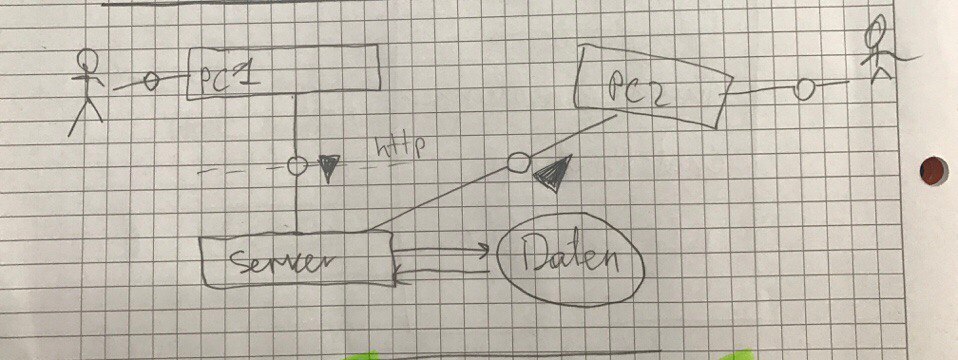 PC1
PC2
http
Server
Daten